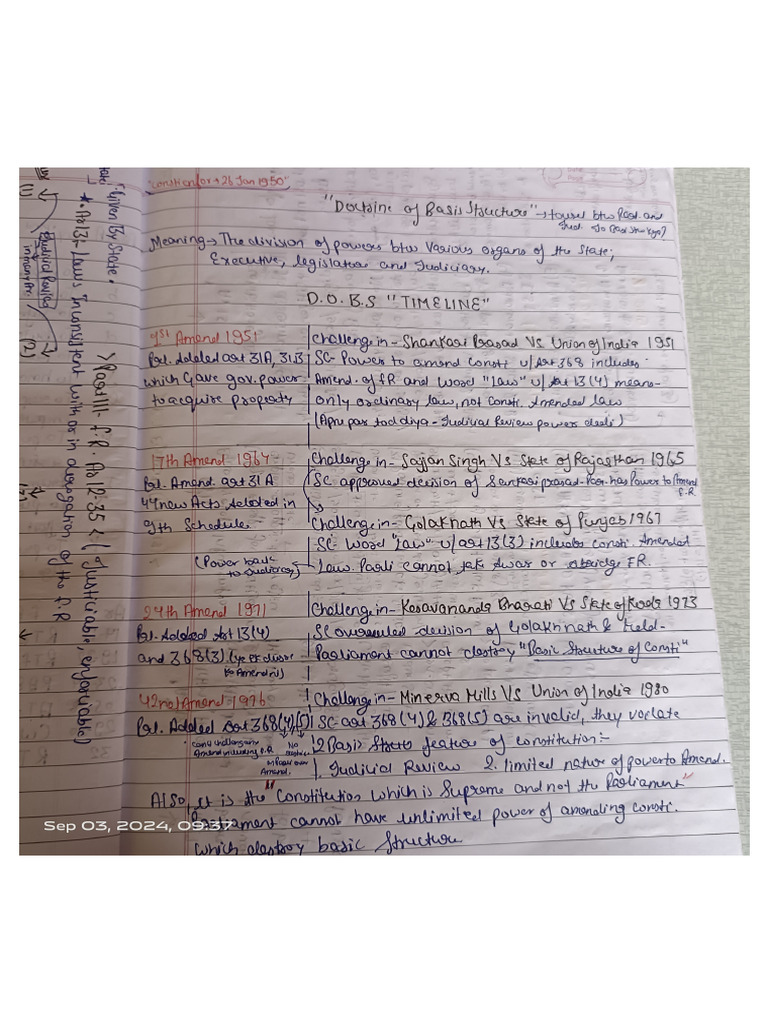 "Constien for → 26 Jan 1950"
"Doctrine of Basis Structure" →
Meaning → The division of powers btw Various organs of the State;
Executive, legislature and Judiciary.
D.O.B.S "TIMELINE"
1st Amend 1951
Parl. Added art 31A, 31B
which Gave gov. power
to acquire property
Challenge in - Shankari Prasad Vs Union of India 1951
SC - Power to amend Consti u/Art 368 includes
Amend. of FR and Word "Law" u/Art 13(4) means
only ordinary law, not Consti. Amended law
(Apne par tod diya - Judicial Review power deeli)
17th Amend 1964
Parl. Amend. art 31A
44 new Acts Added in
9th Schedule
Challenge in - Sajjan Singh Vs State of Rajasthan 1965
SC approved decision of Sankari prasad - Parl. has Power to Amend
F.R.
Challenge in - Golaknath Vs State of Punjab 1967
SC - Word "Law" u/art 13(3) includes consti. Amended
Law. Parli cannot take away or abridge FR.
(Power back
to Judiciary)
24th Amend 1971
Parl. Added Art 13(4)
and 368(3)
Challenge in - Kesavananda Bharati Vs State of Kerala 1973
SC overruled decision of Golakhnath & Held -
Parliament cannot destroy "Basic Structure of Consti"
42nd Amend 1976
Parl. Added art 368(4)(5)
Amend including F.R
Amend.
Challenge in - Minerva Mills Vs Union of India 1980
SC art 368(4) & 368(5) are invalid, they voilate
2 Basic Structs feature of constitution:-
1. Judicial Review 2. limited nature of power to Amend.
Also, "It is the Constitution which is Supreme and not the Parliament"
Parliament cannot have unlimited power of amending consti.
which destroy basic Structure
Given By State.
> Part III - F.R. A. 12-35 < (Justiciable, enforceable)
* A. 13:- Laws Inconsistent with or in derogation of the F.R
Judicial Review
(1)
(2)
Sep 03, 2024, 09:37